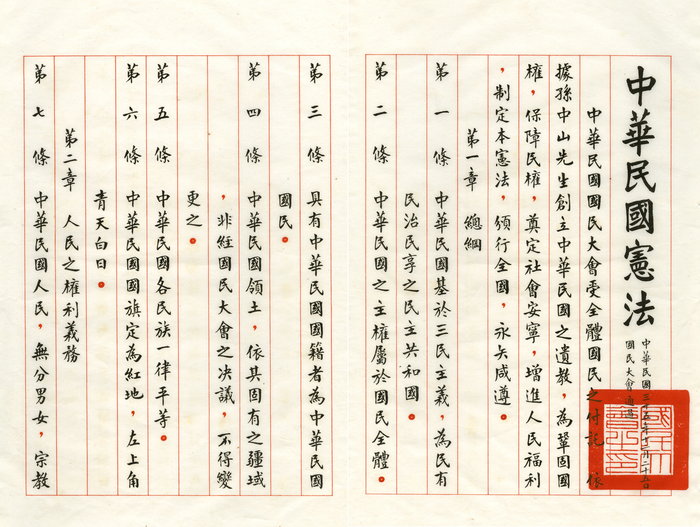 中華民國憲法
中華民國三十五年十二月二十五日
國民大會通過
中華民國國民大會受全體國民之付託 依
據孫中山先生創立中華民國之遺教，為鞏固國
權，保障民權，奠定社會安寧，增進人民福利
，制定本憲法，頒行全國，永矢咸遵。
第一章 總綱
第一條 中華民國基於三民主義，為民有
民治民享之民主共和國。
第二條 中華民國之主權屬於國民全體。
第三條 具有中華民國國籍者為中華民國
國民。
第四條 中華民國領土，依其固有之疆域
，非經國民大會之決議，不得變
更之。
第五條 中華民國各民族一律平等。
第六條 中華民國國旗定為紅地，左上角
青天白日。
第二章 人民之權利義務
第七條 中華民國人民，無分男女，宗教
國民大會之印